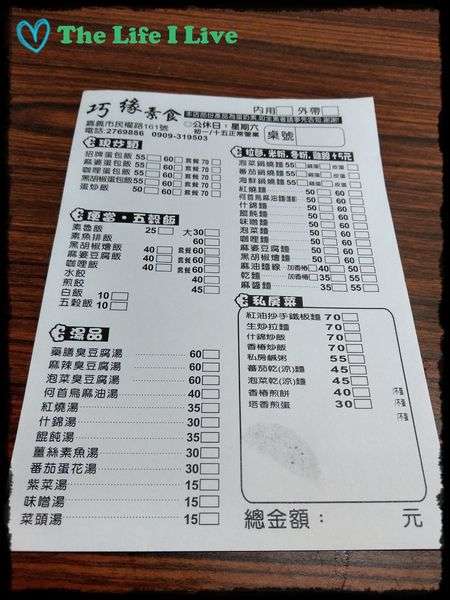 The Life I Live
巧緣素食
內用 外帶
嘉義市民權路161號
電話.2769886 0909-319503
◎公休日:星期六
初一/十五正常營業
桌號
現炒類
招牌蛋包飯 55 60 套餐 70
泡菜蛋包飯 55 60 套餐 70
咖哩蛋包飯 55 60 套餐 70
黑胡椒蛋包飯 55 60 套餐 70
蛋炒飯 50 60 套餐 70
便當・五穀飯
素魯飯 25 大30
素魚排飯 60
黑胡椒燴飯 40 套餐 60
麻婆豆腐飯 40 套餐 60
咖哩飯 40 套餐 60
水餃 40
煎餃 45
白飯 10
五穀飯 10
湯品
藥膳臭豆腐湯 60
麻辣臭豆腐湯 60
泡菜臭豆腐湯 60
何首烏麻油湯 60
紅燒湯 35
什錦湯 30
餛飩湯 35
薑絲素魚湯 30
番茄蛋花湯 30
紫菜湯 15
味噌湯 15
菜頭湯 15
泡菜鍋燒麵 55
番茄鍋燒麵 55
海鮮鍋燒麵 55
紅燒麵 50 60
何首烏麻油麵 60
什錦麵 50 60
餛飩麵 50 60
味噌麵 50 60
泡菜麵 50 60
咖哩麵 50 60
麻婆豆腐麵 50 60
黑胡椒燴麵 50 60
麻油麵線 加香椿 40 50
乾麵 加香椿 35 50
麻醬麵 35 50
私房菜
紅油抄手鐵板麵 70
生炒拉麵 70
什錦炒飯 60
香椿炒飯 60
私房鹹粥 55
番茄乾(涼)麵 45
泡菜乾(涼)麵 45
香椿煎餅 40
塔香煎蛋 30
總金額: 元